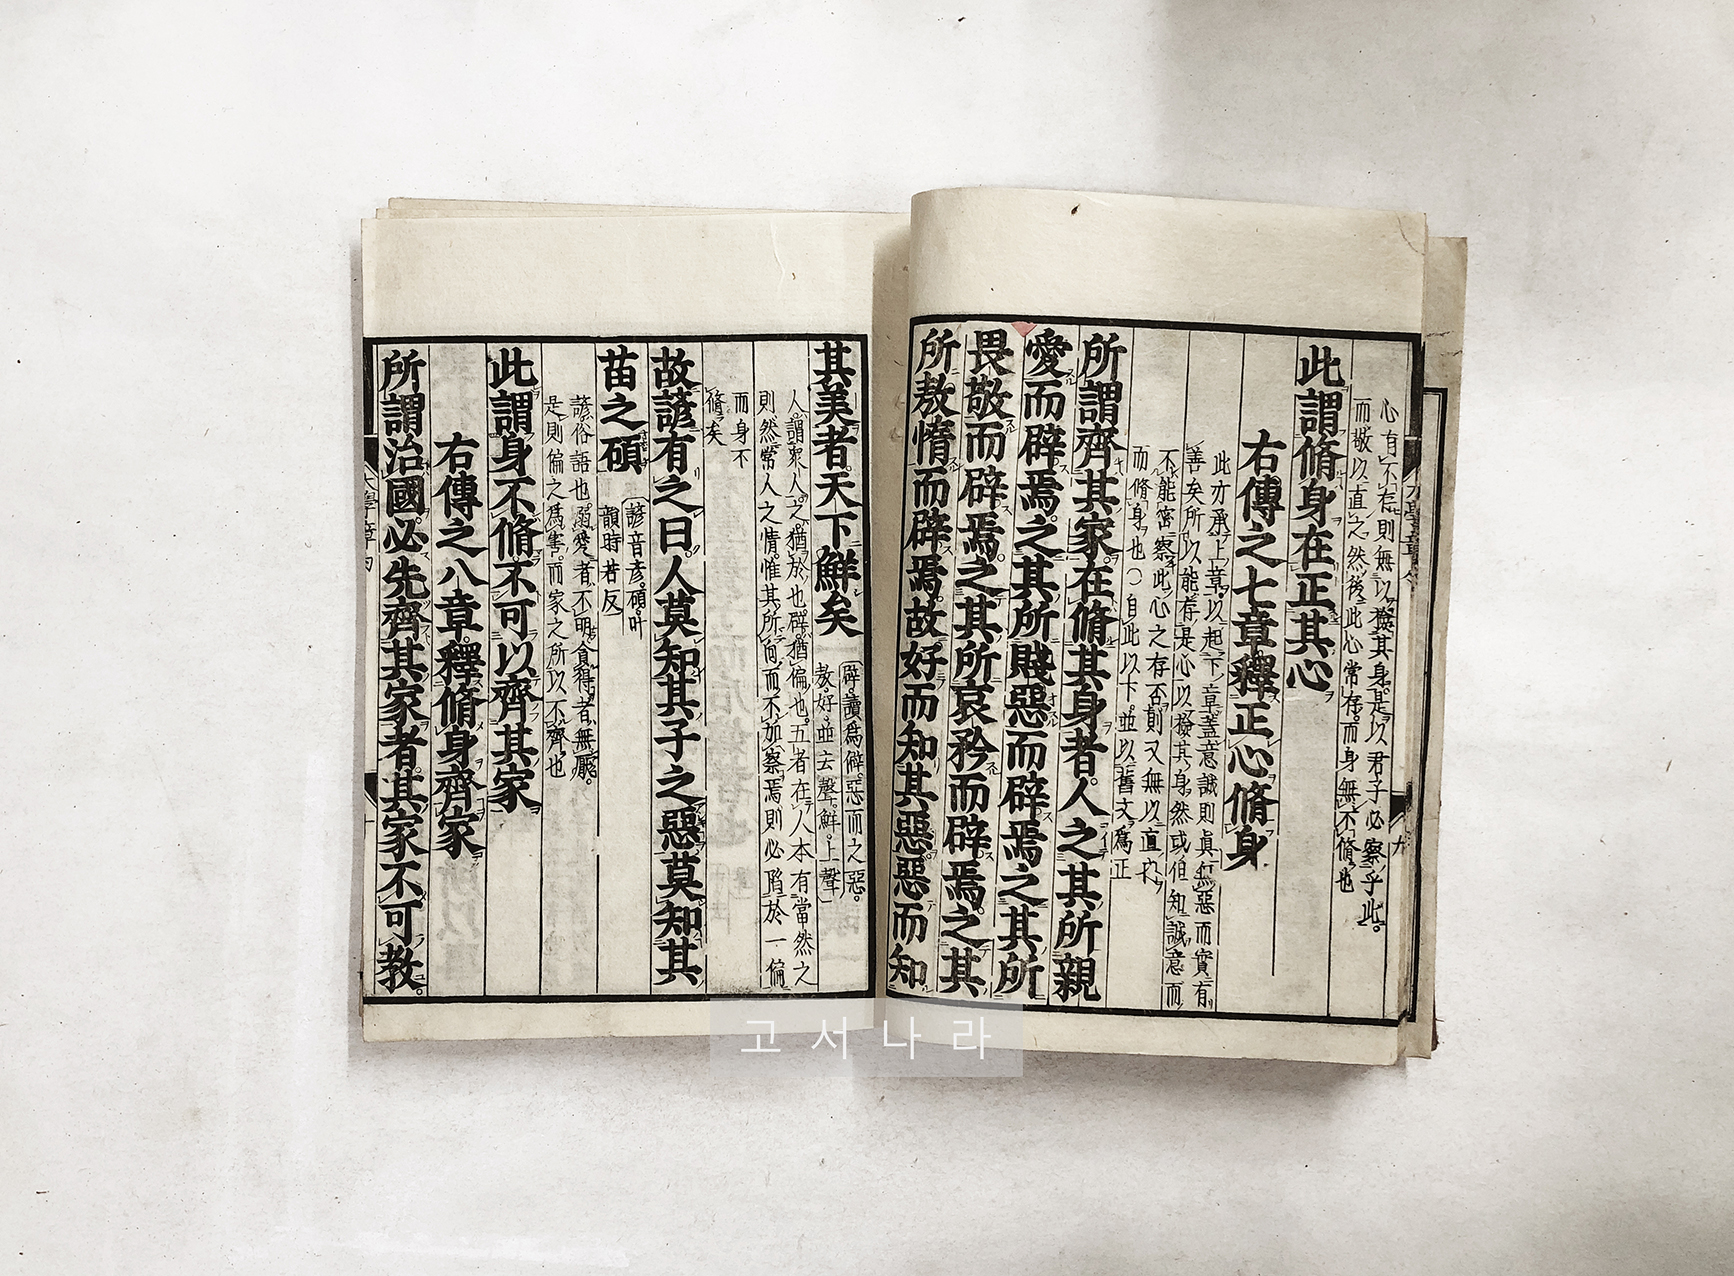 心有不存則無以檢其身是以君子必察乎此
而敬以直之然後此心常存而身無不脩也
此謂脩身在正其心
右傳之七章釋正心脩身
此亦承上章以起下章蓋意誠則眞無惡而實有
善矣所以能存是心以檢其身然或但知誠意而
不能密察此心之存否則又無以直內
而脩身也○自此以下並以舊文爲正
所謂齊其家在脩其身者人之其所親
愛而辟焉之其所賤惡而辟焉之其所
畏敬而辟焉之其所哀矜而辟焉之其
所敖惰而辟焉故好而知其惡惡而知
其美者天下鮮矣
辟讀爲僻惡而之惡
敖好並去聲鮮上聲
人謂衆人之猶於也辟猶偏也五者在人本有當然之
則然常人之情惟其所向而不加察焉則必陷於一偏
而身不
脩矣
故諺有之曰人莫知其子之惡莫知其
苗之碩
諺音彦碩叶
韻時若反
諺俗語也溺愛者不明貪得者無厭
是則偏之爲害而家之所以不齊也
此謂身不脩不可以齊其家
右傳之八章釋脩身齊家
所謂治國必先齊其家者其家不可教
大學章句
고서나라